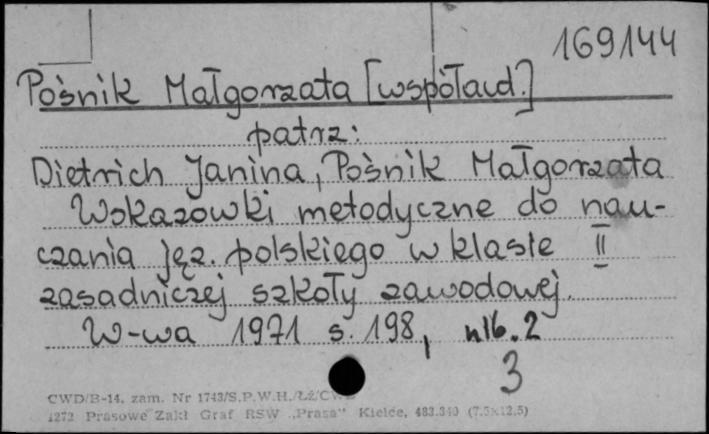 169144
Pośnik Małgorzata [współaud.]
patrz:
Dietrich Janina, Pośnik Małgorzata
Wskazówki metodyczne do nau-
czania jęz. polskiego w klasie II
zasadniczej szkoły zawodowej.
W-wa 1971 s. 198, nlb. 2
3
CWD/B-14. zam. Nr 1743/S.P.W.H./Łź/CWD
1272 Prasowe Zakł Graf RSW „Prasa" Kielce, 483.340 (7.5x12.5)